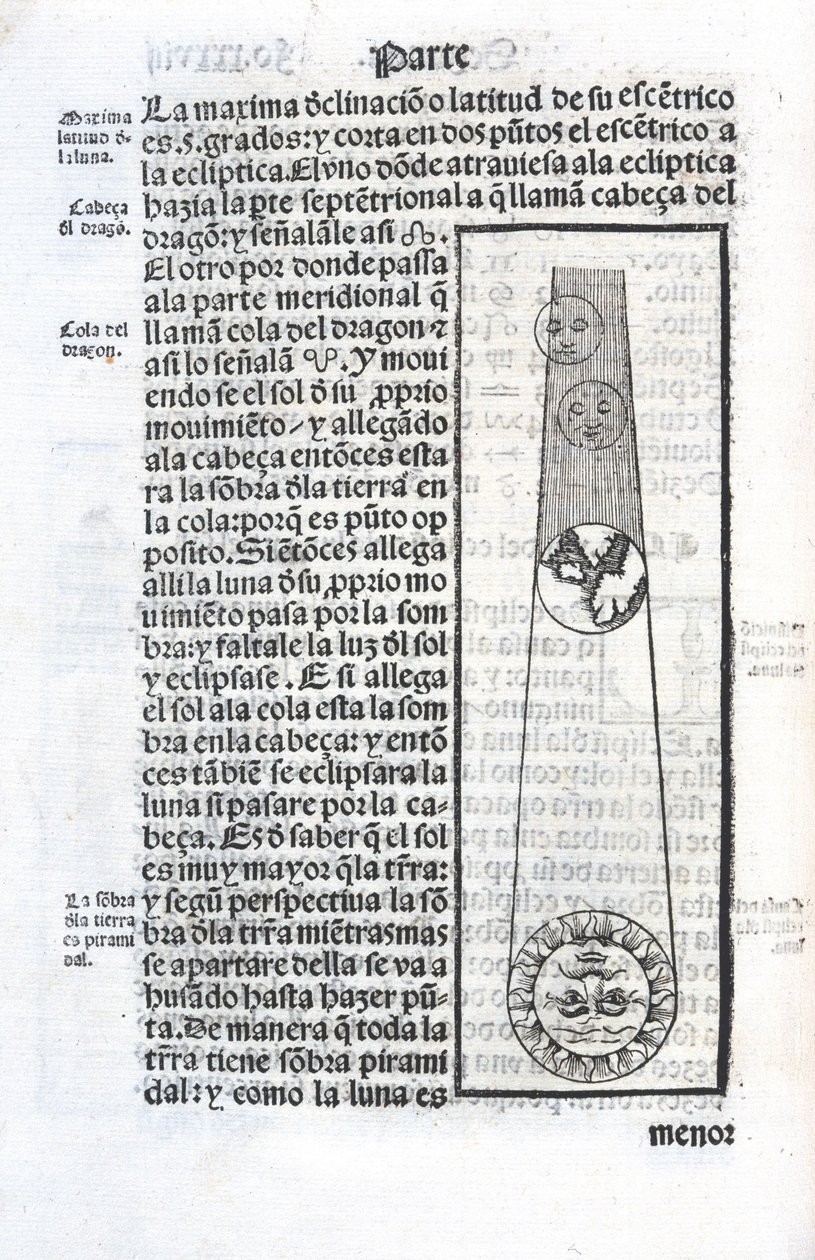 Parte
La maxima d̄clinaciō o latitud de su escētrico
es .5. grados: y corta en dos pūtos el escētrico a
la ecliptica. El vno dōde atrauiesa ala ecliptica
hazia la pte septētrional a q̄ llamā cabeça del
dragō: y señalāle asi ☊.
El otro por donde passa
ala parte meridional q̄
llamā cola del dragon ⁊
asi lo señalā ☋. Y moui
endo se el sol d̄ su ꝓprio
mouimiēto / y allegādo
ala cabeça entōces esta
ra la sōbra d̄la tierra en
la cola: porq̄ es pūto op
posito. Si ētōces allega
alli la luna d̄ su ꝓprio mo
uimiēto pasa por la som
bra: y faltale la luz d̄l sol
y eclipsase. E si allega
el sol ala cola esta la som
bra enla cabeça: y entō
ces tābiē se eclipsara la
luna si pasare por la ca-
beça. Es d̄ saber q̄ el sol
es muy mayor q̄la tr̄ra:
y segū perspectiua la sō
bra d̄la tr̄ra miētras mas
se apartare della se va a
husādo hasta hazer pū-
ta. De manera q̄ toda la
tr̄ra tiene sōbra pirami
dal: y como la luna es
menor
Maxima
latitud d̄-
la luna.
Cabeça
d̄l dragō.
Cola del
dragon.
La sōbra
d̄la tierra
es pirami
dal.